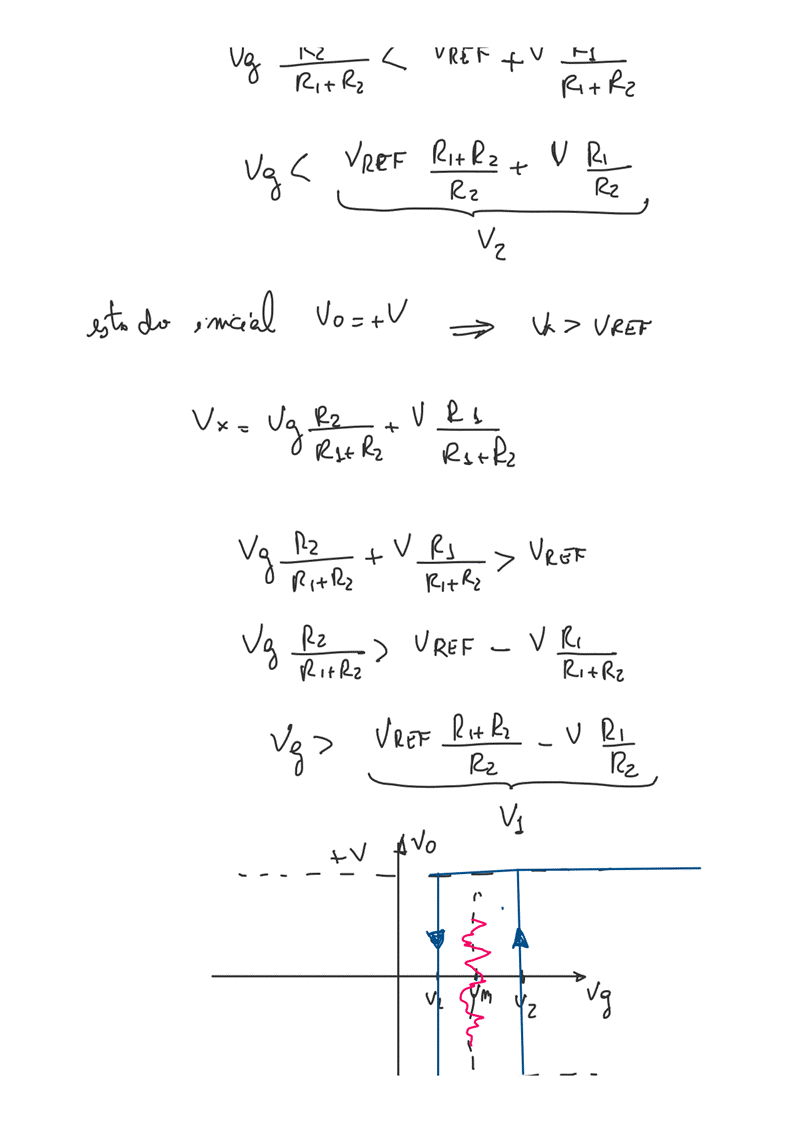 Vg R2/(R1+R2) < VREF + V R1/(R1+R2)
Vg < VREF (R1+R2)/R2 + V R1/R2
V2
estado inicial Vo = +V ⇒ Vx > VREF
Vx = Vg R2/(R1+R2) + V R1/(R1+R2)
Vg R2/(R1+R2) + V R1/(R1+R2) > VREF
Vg R2/(R1+R2) > VREF − V R1/(R1+R2)
Vg > VREF (R1+R2)/R2 − V R1/R2
V1
+V Vo
V1 VM V2 Vg